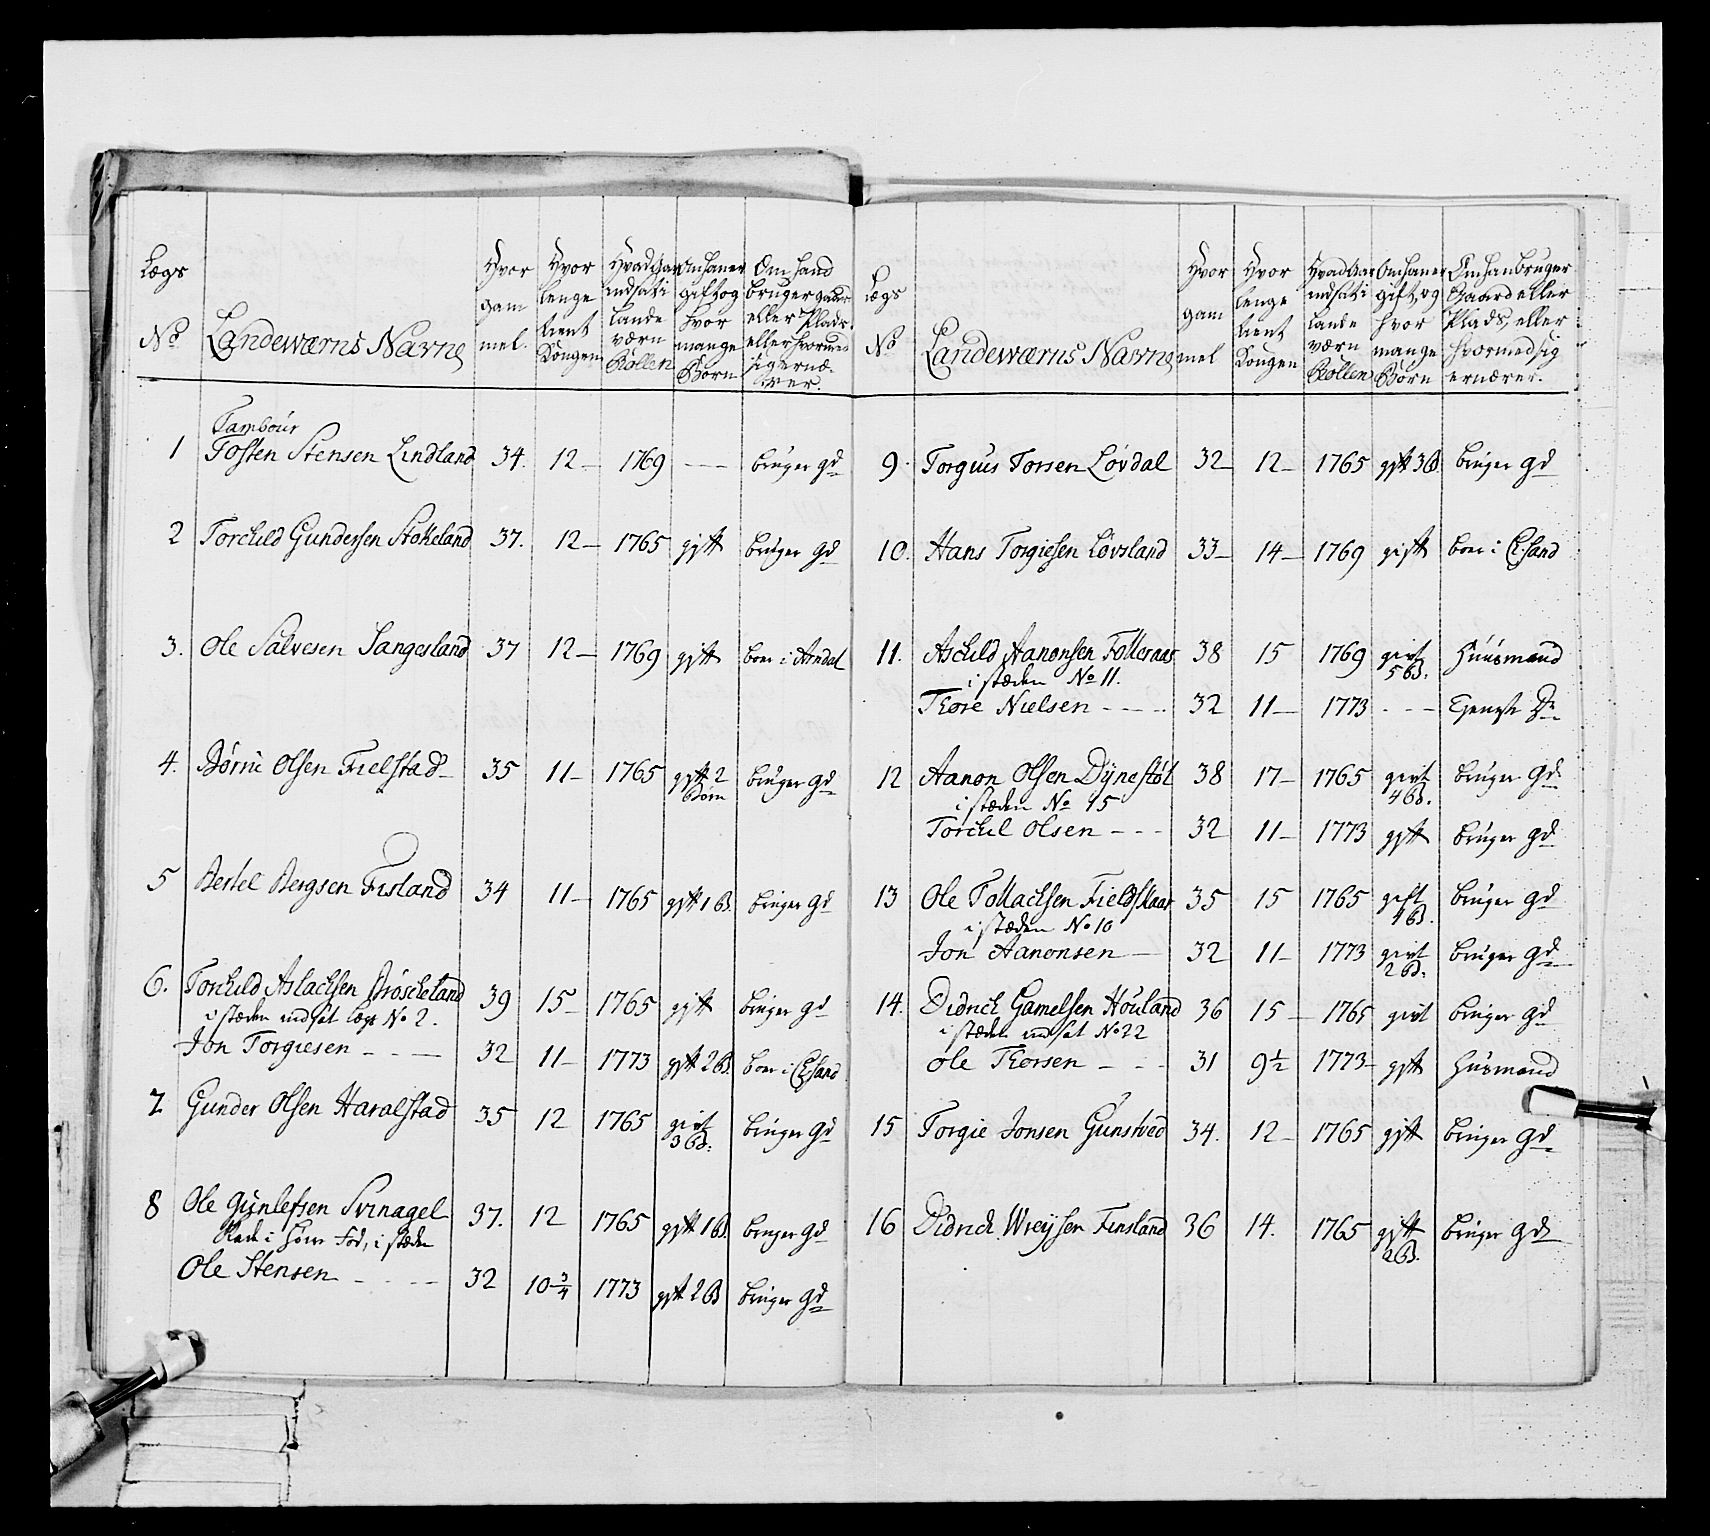 Lægs No
Landewærns Navne
Hvor gammel.
Hvor lenge tient Kongen
Hvad Aar indsat i Landeværn Rollen
Om han er gift og hvor mange Børn
Om hand bruger gaard eller Plads, eller hvormed sig ernærer.
Tambour
1 Tosten Stensen Lindland 34. 12 – 1769 – – bruger gd
2 Torchild Gundersen Stokeland 37. 12 – 1765 gift bruger gd
3. Ole Salvesen Sangesland 37 12 – 1769 gift boer i Arndal
4. Børne Olsen Fielstad – 35 11 – 1765 gift 2 Børn bruger gd
5 Bertel Bergsen Fisland 34 11 – 1765 gift 1 B. bruger gd
6. Torchild Aslachsen Drøscheland 39 15 – 1765 gift bruger gd
i stæden indsat læg No 2.
Jon Torgiesen – – – 32 11 – 1773 gift 2 B. boer i Chsand
7 Gunder Olsen Haralstad 35 12 1765 givt 3 B. bruger gd
8 Ole Gunlefsen Svinagel 37. 12 1765 gift 1 B. bruger gd
i stæden
Ole Stensen – – – – 32 10 3/4 1773 gift 2 B bruger gd
Lægs No
Landewærns Navne
Hvor gammel
Hvor lenge tient Kongen
Hvad Aar indsat i Lande værn Rollen
Om han er gift, og hvor mange Børn
Om han bruger Gaard eller Plads, eller hvormed sig ernærer.
9. Torguus Torsen Løvdal 32 – 12 – 1765 gift 3 B. bruger gd
10. Hans Torgiesen Løvsland 33 – 14 – 1769 gift boer i Chsand
11. Aschild Aanonsen Folleraas 38 15 1769 givt 5 B. Huusmand
i stæden No 11.
Thore Nielsen – – – 32 11 – 1773 – – – Tieneste D
12 Aanon Olsen Dynestøl 38 17 – 1765 givt 4 B. bruger gd
i stæden No 15
Torchel Olsen – – – 32 11 – 1773 gift bruger gd
13 Ole Tollachsen Fieldskaar 35 15 1765 gift 4 B. bruger gd
i stæden No 10
Jon Aanonsen – 32 11 – 1773 givt 2 B. bruger gd
14. Didrich Gamelsen Houland 36 15 – 1765 givt bruger gd
i stæden indsat No 22
Ole Thorsen – – – 31 9 1/2 1773 – gift Huusmand
15 Torgie Jonsen Gunstved 34. 12 – 1765 gift bruger gd
16 Didrich Wreysen Finsland 36 14. 1765 gift 2 B. bruger gd